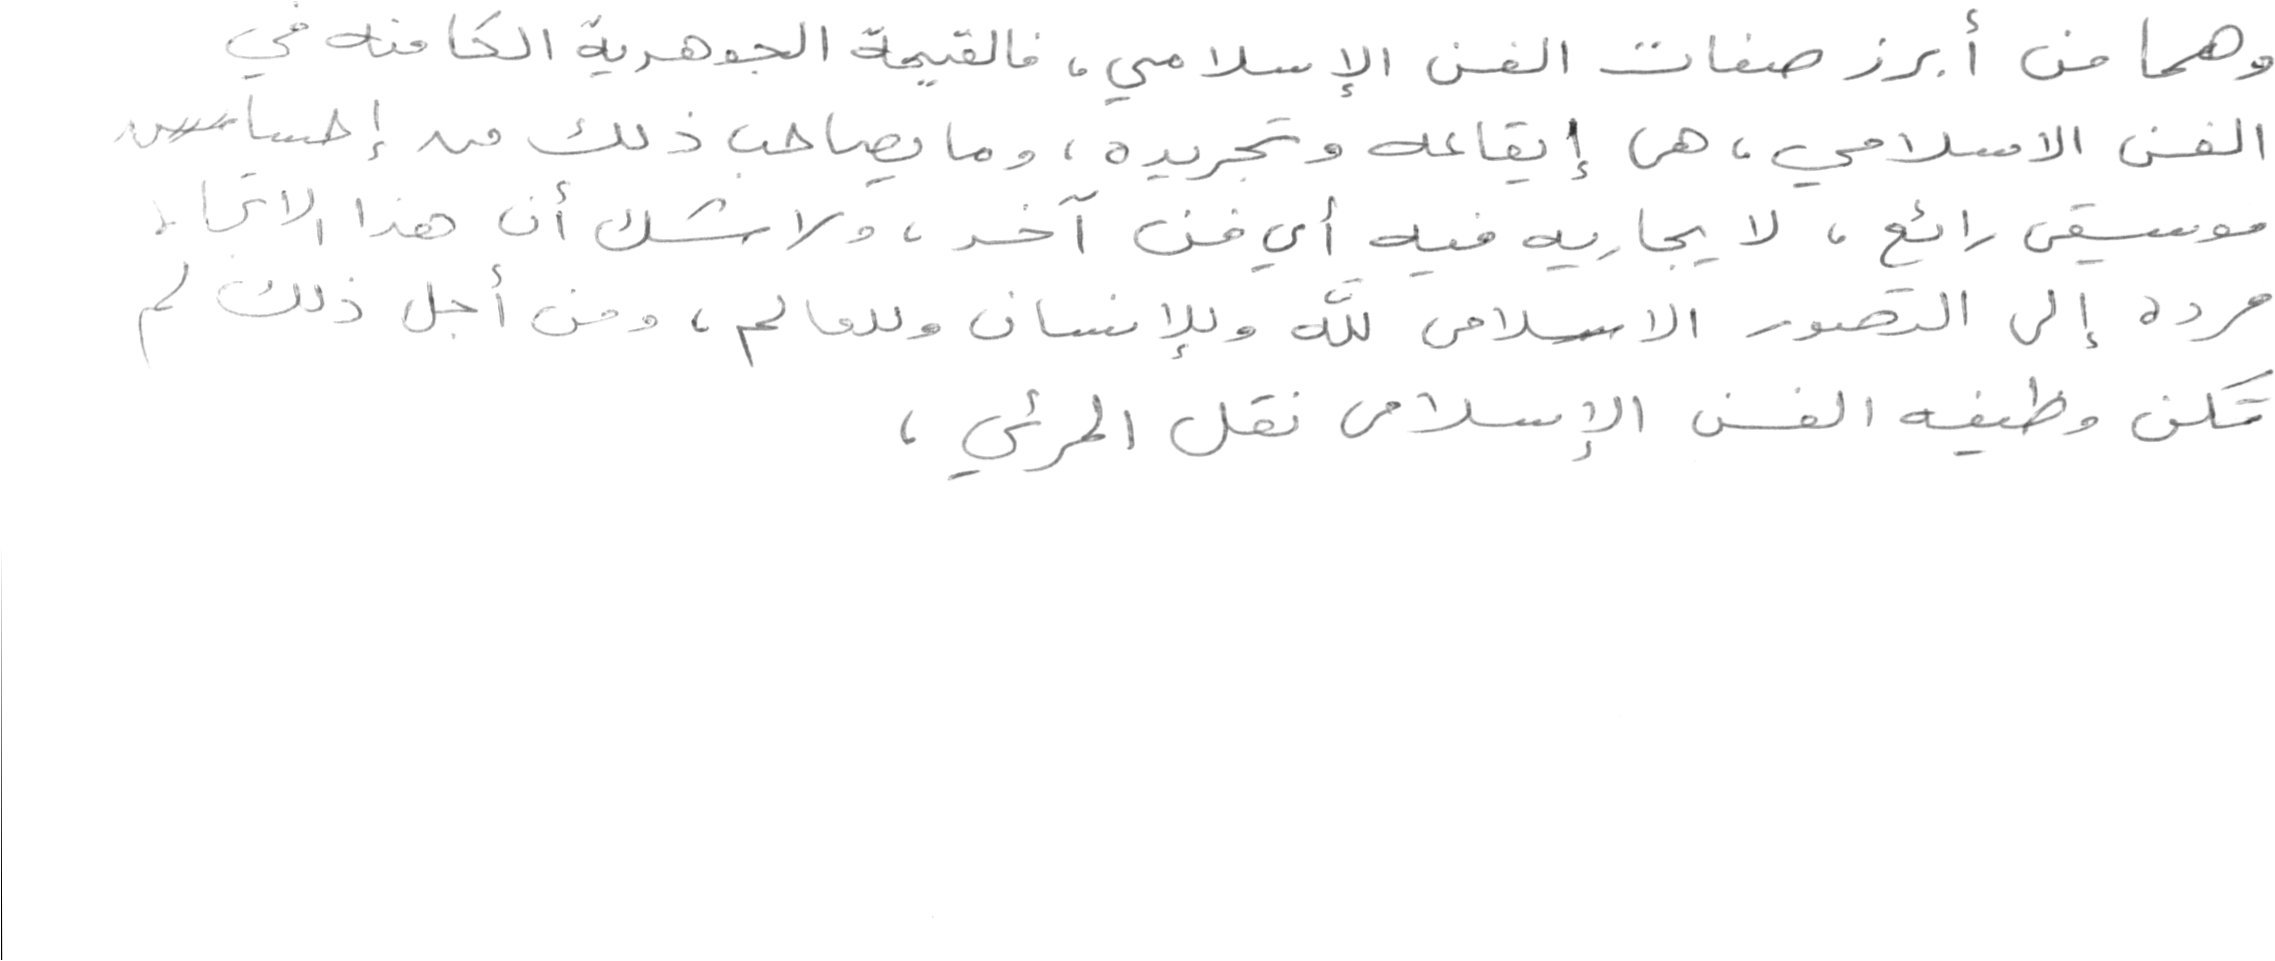 وهما من أبرز صفات الفن الإسلامي، فالقيمة الجوهرية الكامنه في
الفن الاسلامي، هى إيقاعه وتجريده، وما يصاحب ذلك من إحساس
موسيقى رائع، لا يجاريه فيه أي فن آخر، ولا شك أن هذا الاتجاه
مرده إلى التصور الاسلامى للّه وللإنسان وللعالم، ومن أجل ذلك لم
تكن وظيفه الفن الإسلامى نقل المرئي،